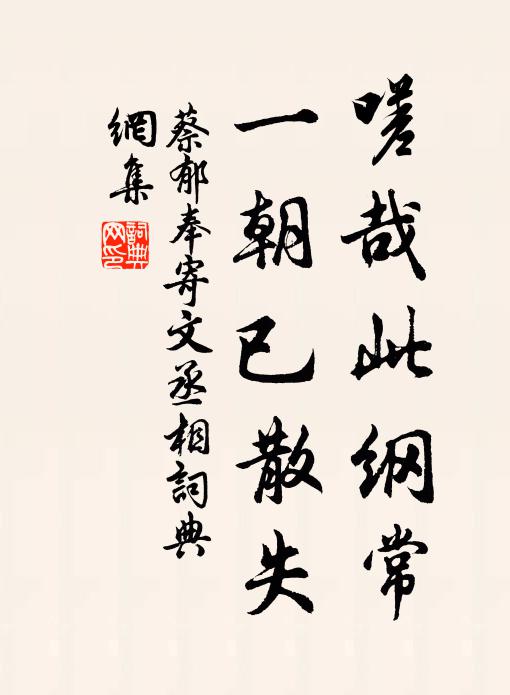 嗟哉此纲常
一朝已散失
蔡郁奉寄文丞相詞典
網集
詞典
网印